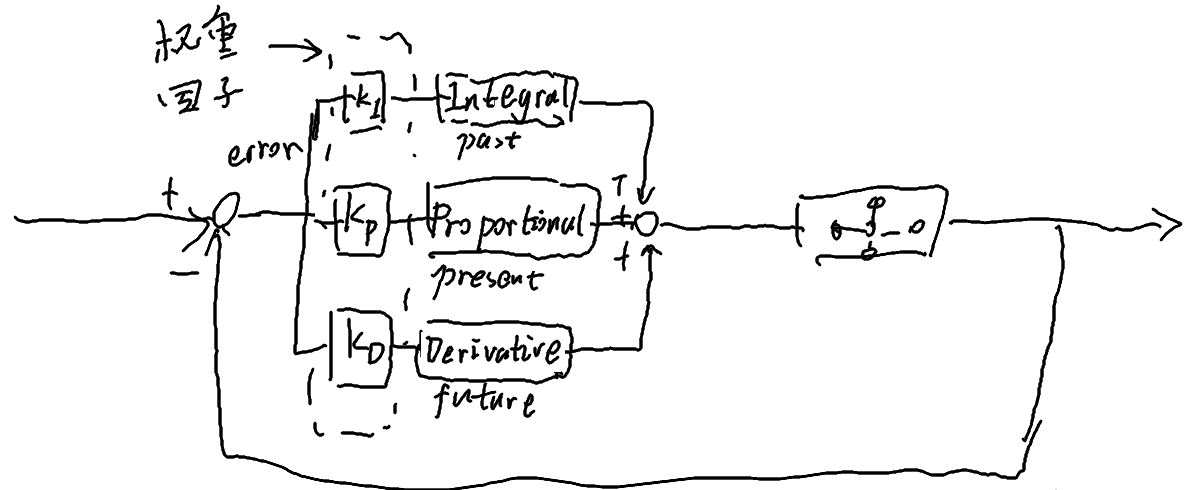 权重
因子
K_I Integral
past
error
+
K_P Proportional
+
+
+
−
present
K_D Derivative
future